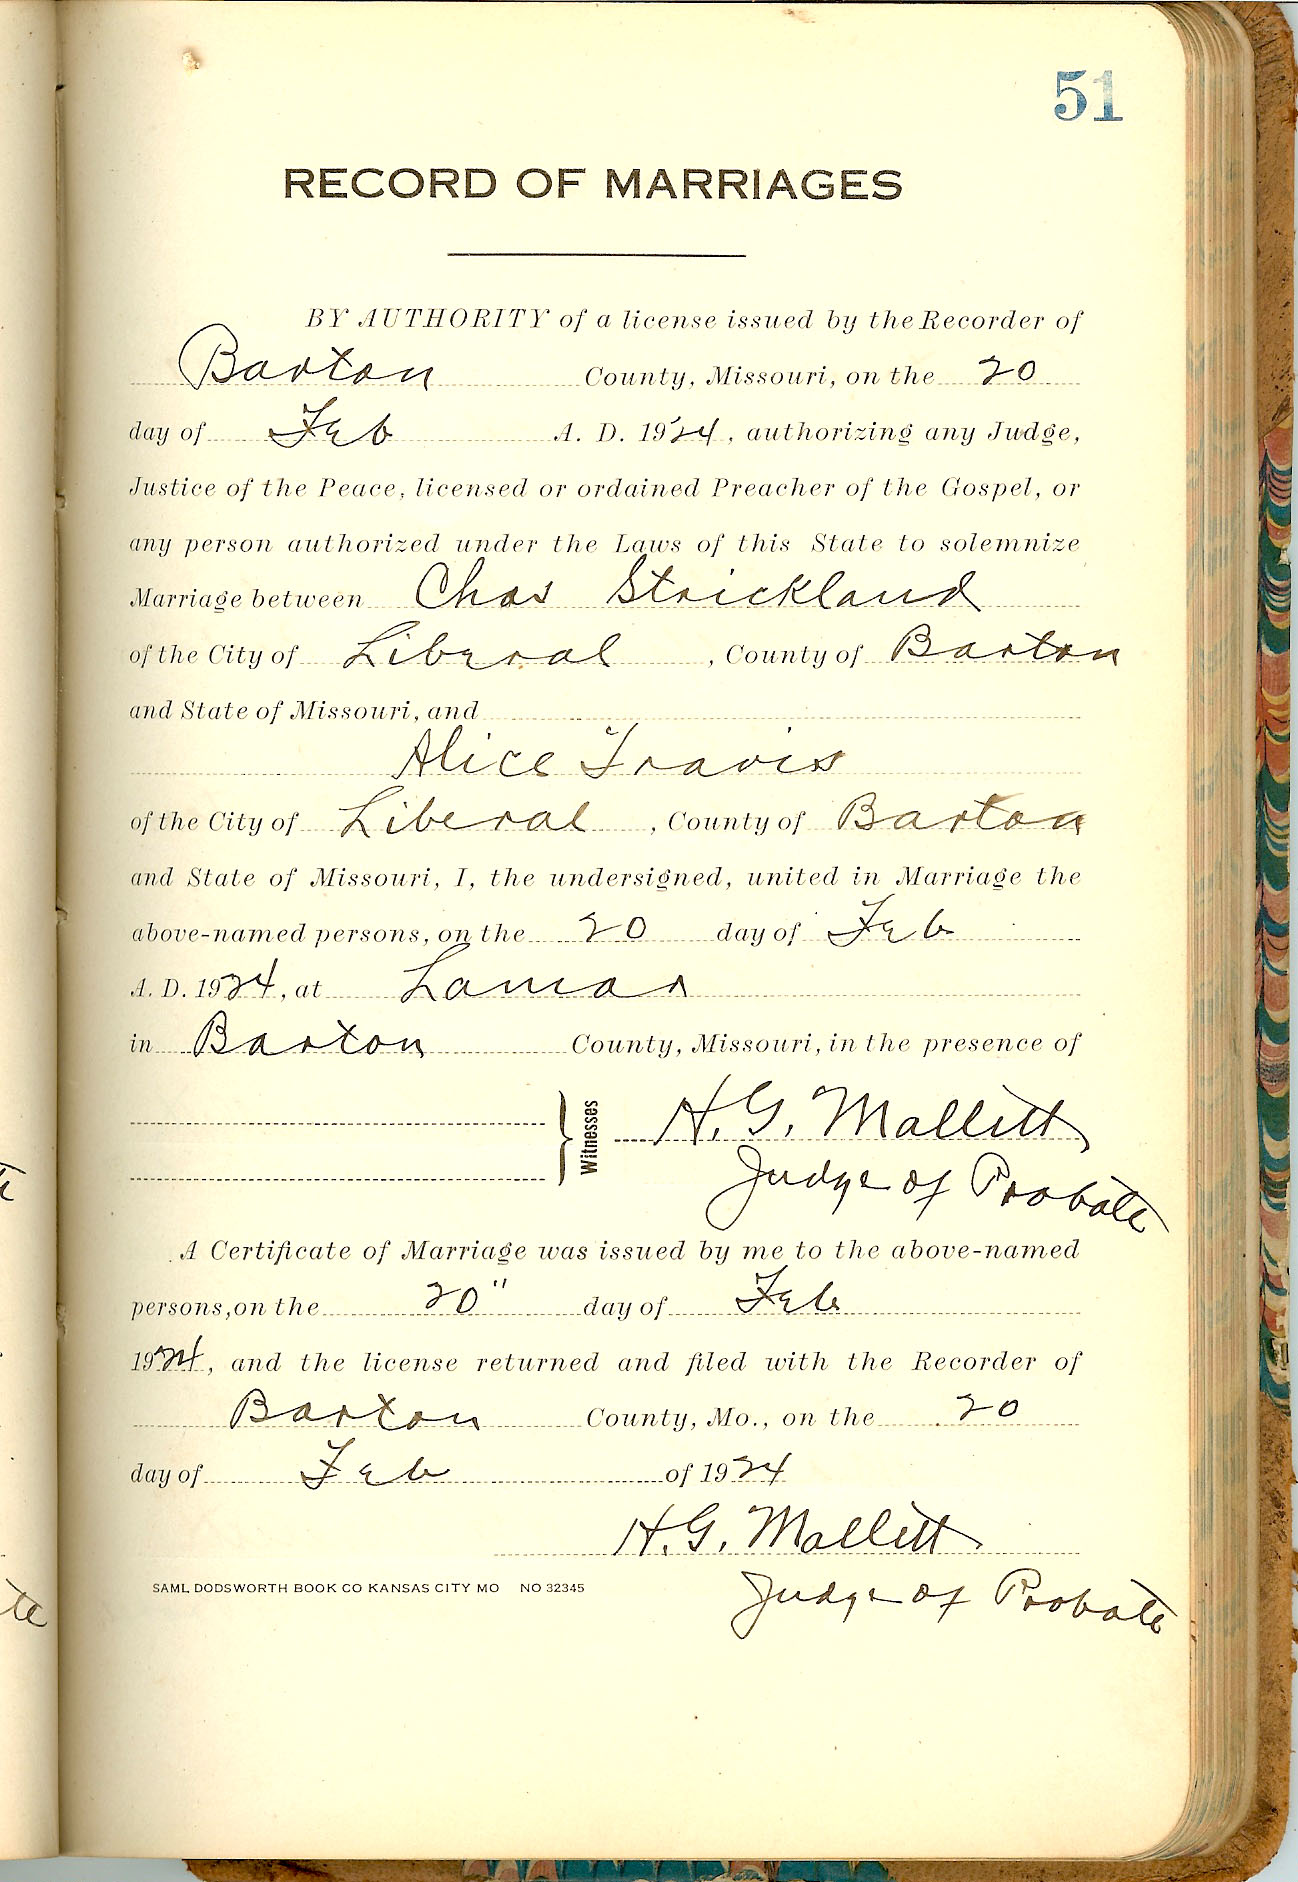 51
RECORD OF MARRIAGES
BY AUTHORITY of a license issued by the Recorder of
Barton County, Missouri, on the 20
day of Feb A. D. 1924, authorizing any Judge,
Justice of the Peace, licensed or ordained Preacher of the Gospel, or
any person authorized under the Laws of this State to solemnize
Marriage between Chas Strickland
of the City of Liberal, County of Barton
and State of Missouri, and
Alice Travis
of the City of Liberal, County of Barton
and State of Missouri, I, the undersigned, united in Marriage the
above-named persons, on the 20 day of Feb
A. D. 1924, at Lamar
in Barton County, Missouri, in the presence of
Witnesses H. G. Mallitt
Judge of Probate
A Certificate of Marriage was issued by me to the above-named
persons, on the 20" day of Feb
1924, and the license returned and filed with the Recorder of
Barton County, Mo., on the 20
day of Feb of 1924
H. G. Mallitt
SAML DODSWORTH BOOK CO KANSAS CITY MO NO 32345
Judge of Probate